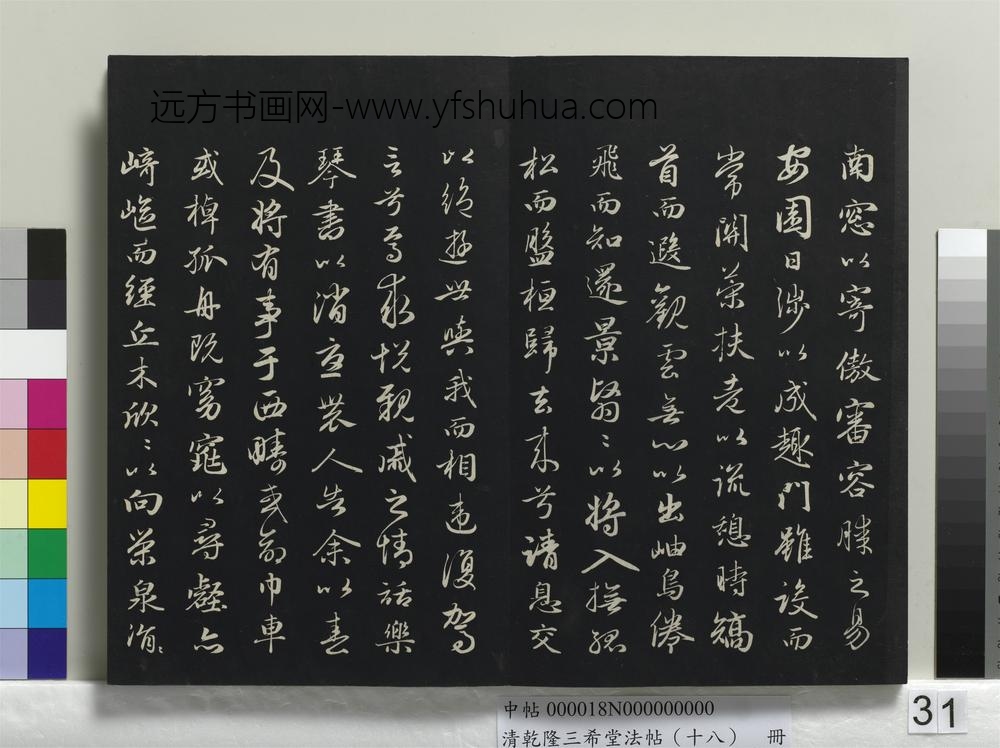 远方书画网-www.yfshuhua.com
南窓以寄傲審容膝之易
安園日涉以成趣門雖設而
常関策扶老以流憩時矯
首而遐觀雲無心以出岫鳥倦
飛而知還景翳〻以將入撫孤
松而盤桓歸去來兮請息交
以絕遊世與我而相違復駕
言兮焉求悅親戚之情話樂
琴書以消憂農人告余以春
及將有事于西疇或命巾車
或棹孤舟既窈窕以尋壑亦
崎嶇而經丘木欣〻以向榮泉涓〻
31
中帖 000018N000000000
清乾隆三希堂法帖（十八） 冊